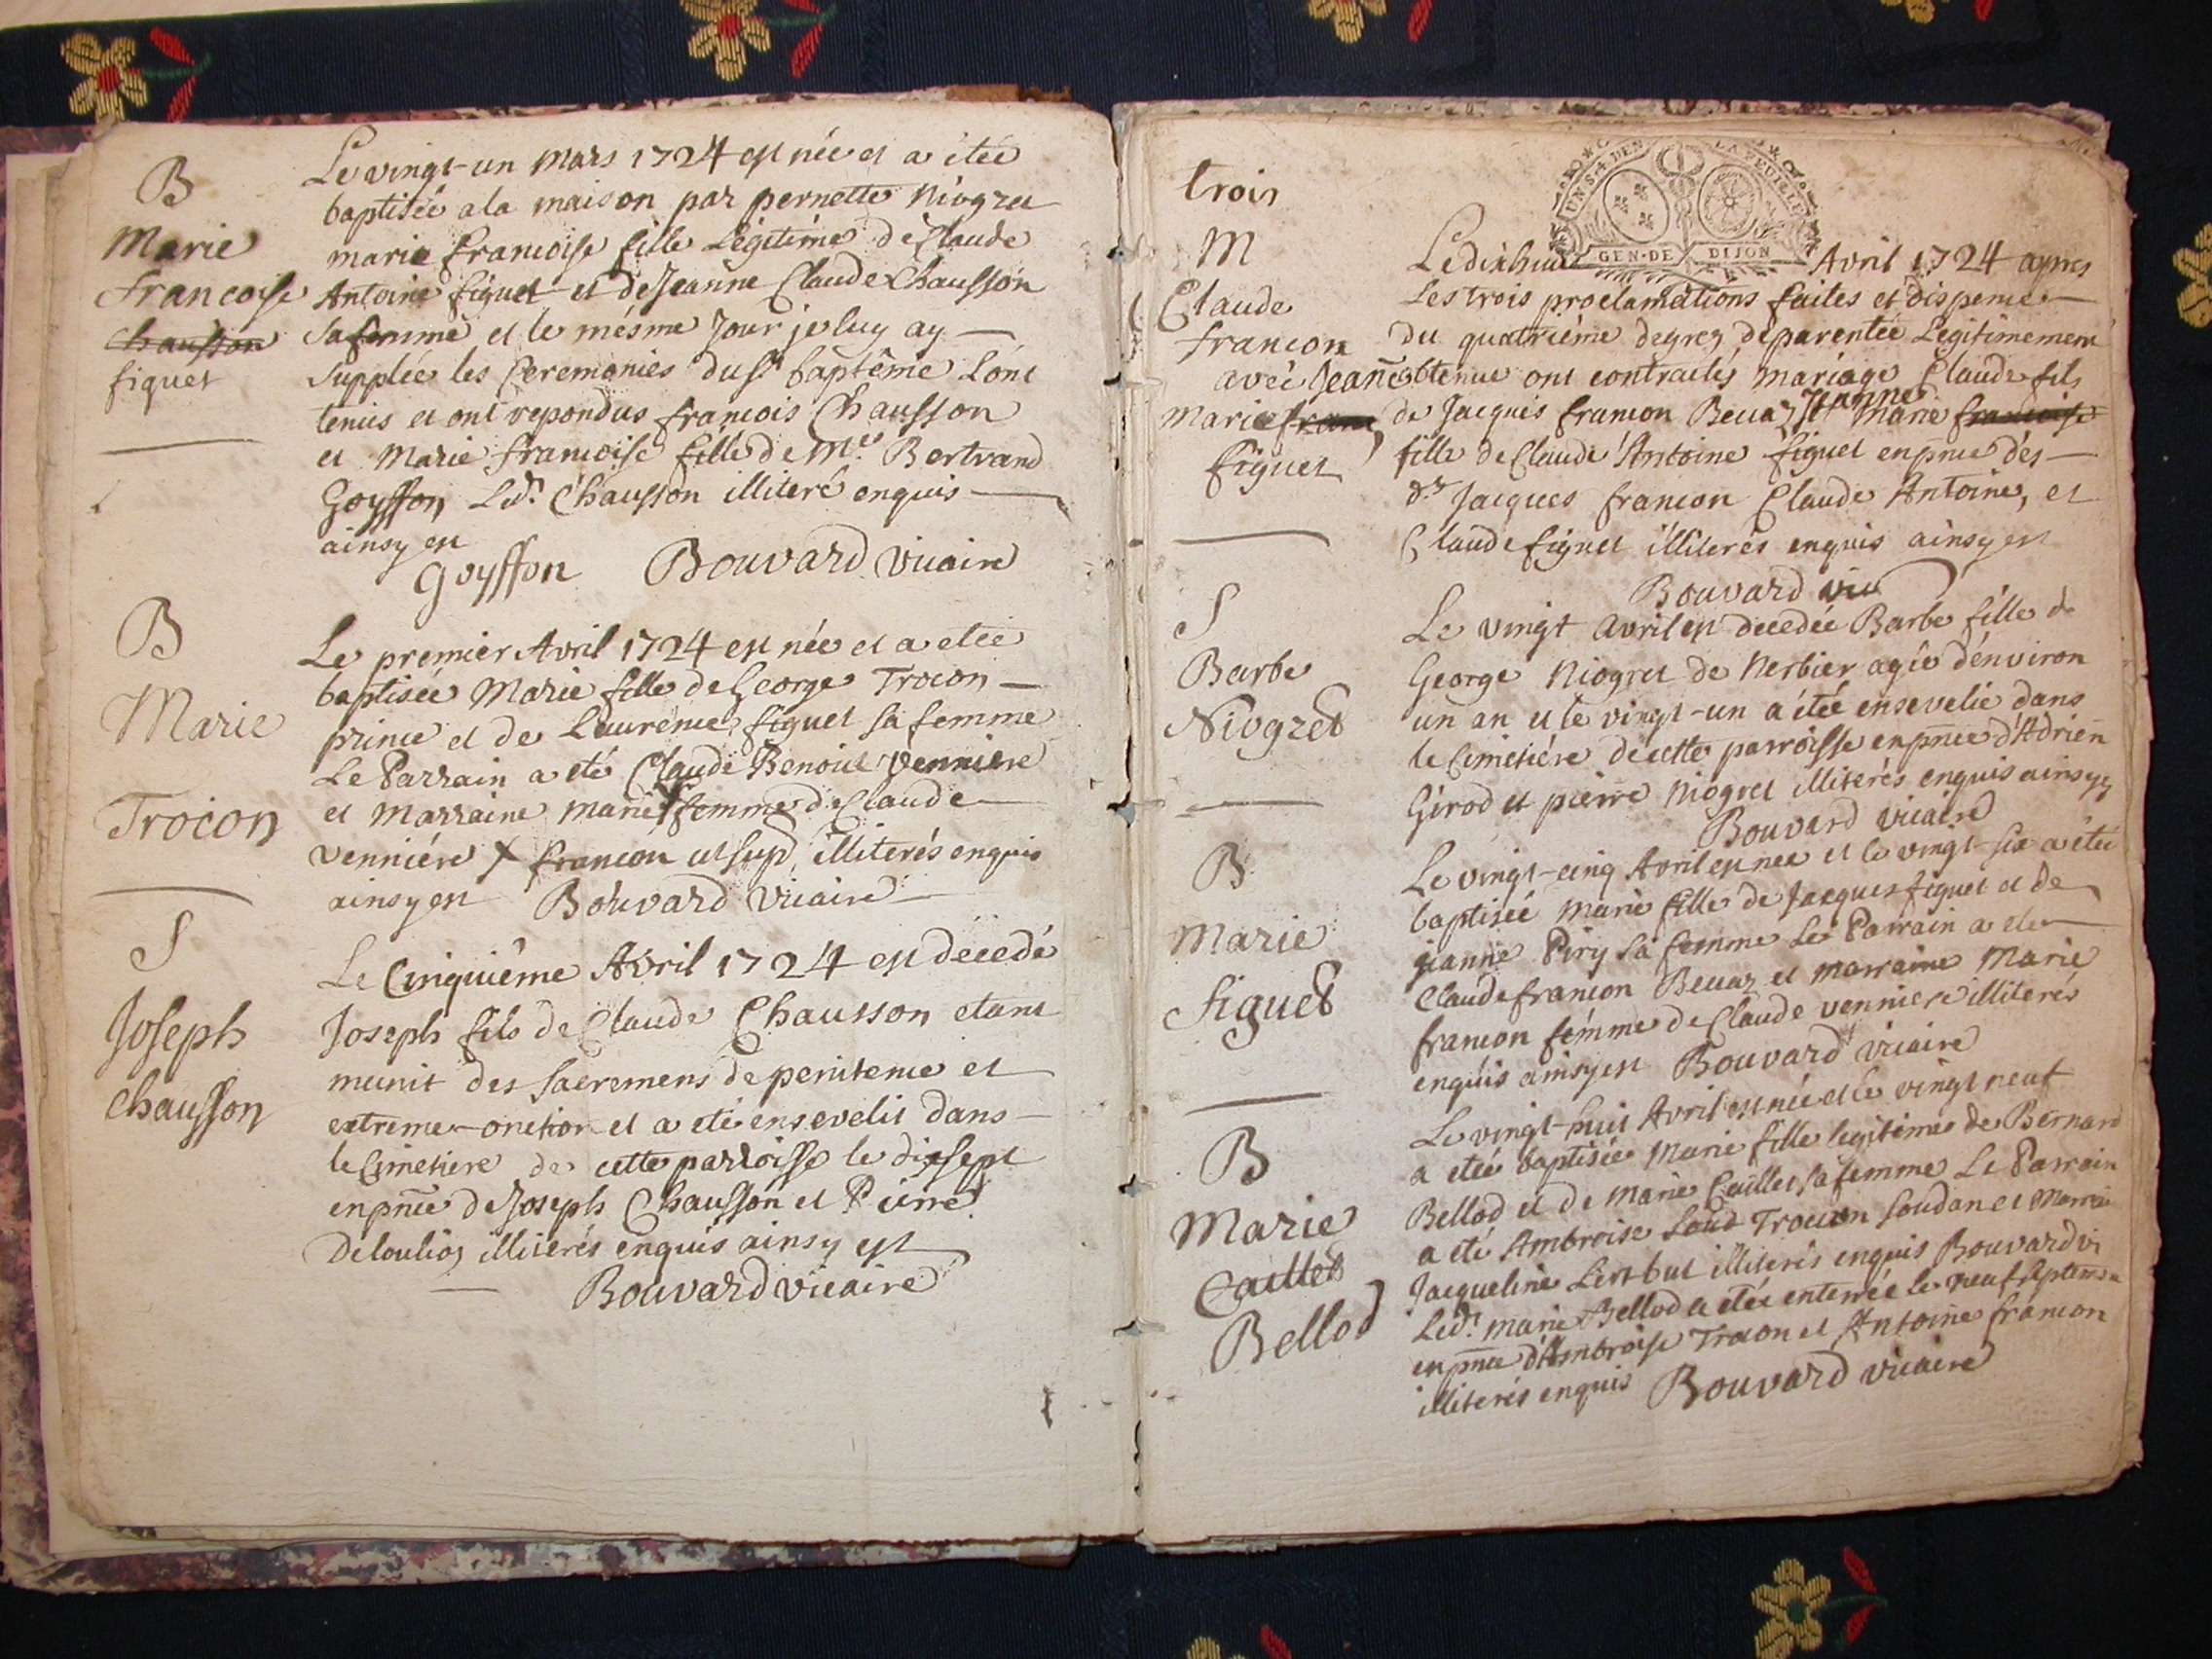 B
Marie
francoise
chausson
figuet
Le vingt-un mars 1724 est née et a étée
baptisée a la maison par pernette Niogret
marie francoise fille Légitime de Claude
Antoine figuet et de Jeanne Claude Chausson
sa femme et le mésme Jour je luy ay
supplée les Ceremonies du st baptême L'ont
tenus et ont repondus francois Chausson
et Marie francoise fille de Me Bertrand
Goyffon, Led. Chausson illiteré enquis
ainsy est
Goyffon Bouvard vicaire
B
Marie
Trocon
Le premier Avril 1724 est née et a etée
baptisée Marie fille de George Trocon
prince et de Laurence figuet sa femme
Le Parrain a eté Claude Benoict venniere
et Marraine Marie femme de Claude
venniére X francon ut sup illiterés enquis
ainsy est Bouvard vicaire
S
Joseph
Chausson
Le Cinquiême Avril 1724 est decedé
Joseph fils de Claude Chausson etant
munit des sacremens de penitence et
extreme-onction et a eté ensevelit dans
le Cimetiere de cette parroisse le dixsept
en pnce de Joseph Chausson et Pierre
Deloulioz illiterés enquis ainsy est
Bouvard vicaire
trois
UN S. 4 DEN LA FEUILLE
GEN. DE DIJON
M
Claude
francon
avec Jeanne
Marie franc
figuet
Le dixhuit Avril 1724 apres
Les trois proclamations faites et dispence
du quatriéme degrez de parentée Legitimement
obtenue ont contractés mariage Claude fils
de Jacques francon Beuaz et Jeanne Marie francoise
fille de Claude Antoine figuet en pnce dés
ds Jacques francon Claude Antoine, et
Claude figuet illiterés enquis ainsy est
Bouvard vic
S
Barbe
Niogret
Le vingt avril est decedée Barbe fille de
George Niogret de Nerbier agée d'environ
un an et le vingt-un a étée ensevelie dans
le Cimetiére de cette parroisse en pnce d'Adrien
Girod et pierre Niogret illiterés enquis ainsy est
Bouvard vicaire
B
Marie
figuet
Le vingt-cinq Avril est née et le vingt-six a étée
baptisée Marie fille de Jacques figuet et de
jeanne Piry sa femme Le Parrain a eté
Claude francon Beuaz et marraine Marie
francon femme de Claude venniere illiterés
enquis ainsy est Bouvard vicaire
B
Marie
Caillet
Bellod
Le vingt-huit Avril est née et le vingt neuf
a etée baptisée Marie fille legitime de Bernard
Bellod et de Marie Caillet sa femme Le Parrain
a eté Ambroise Trocon soudan et Marraine
Jacqueline illiterés enquis Bouvard vi
Led. marie Bellod a etée enterrée le neuf septembre
en pnce d'Ambroise Trocon et Antoine francon
illiterés enquis Bouvard vicaire